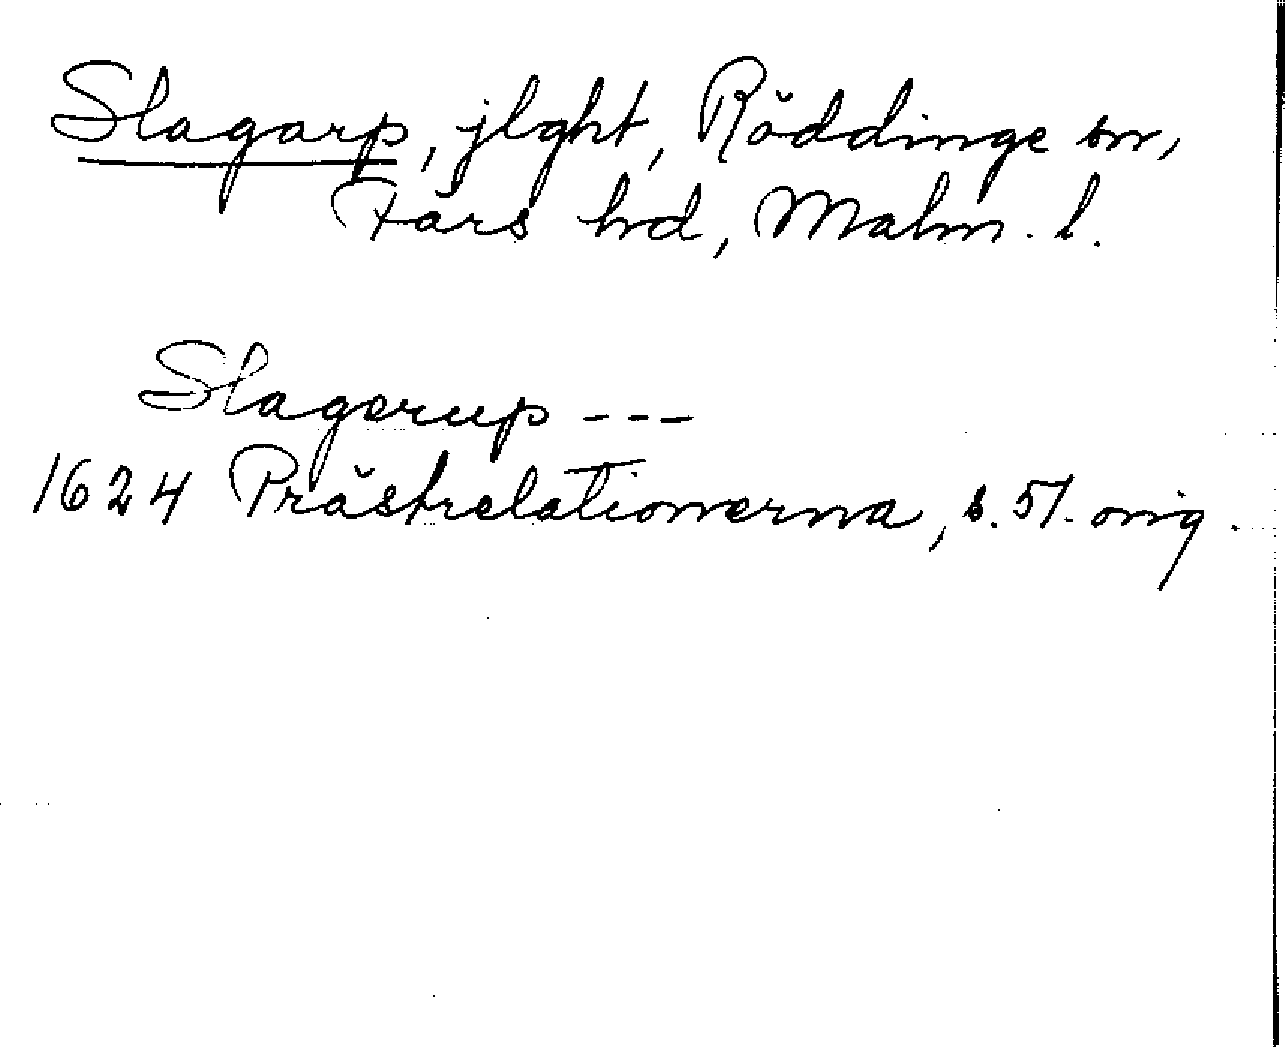 Slagarp, jlght, Röddinge sn,
Färs hd, Malm. l.
Slagerup ---
1624 Prästrelationerna, s. 51. orig.